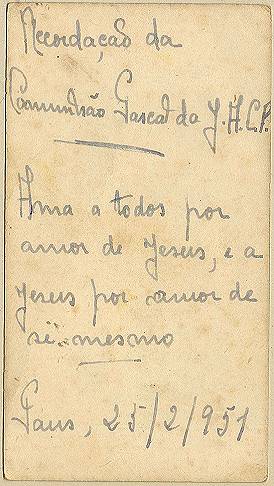 Recordação da
Comunhão Pascal da J.A.C.F.
Ama a todos por
amor de Jesus, e a
Jesus por amor de
si mesmo
Paus, 25/2/951